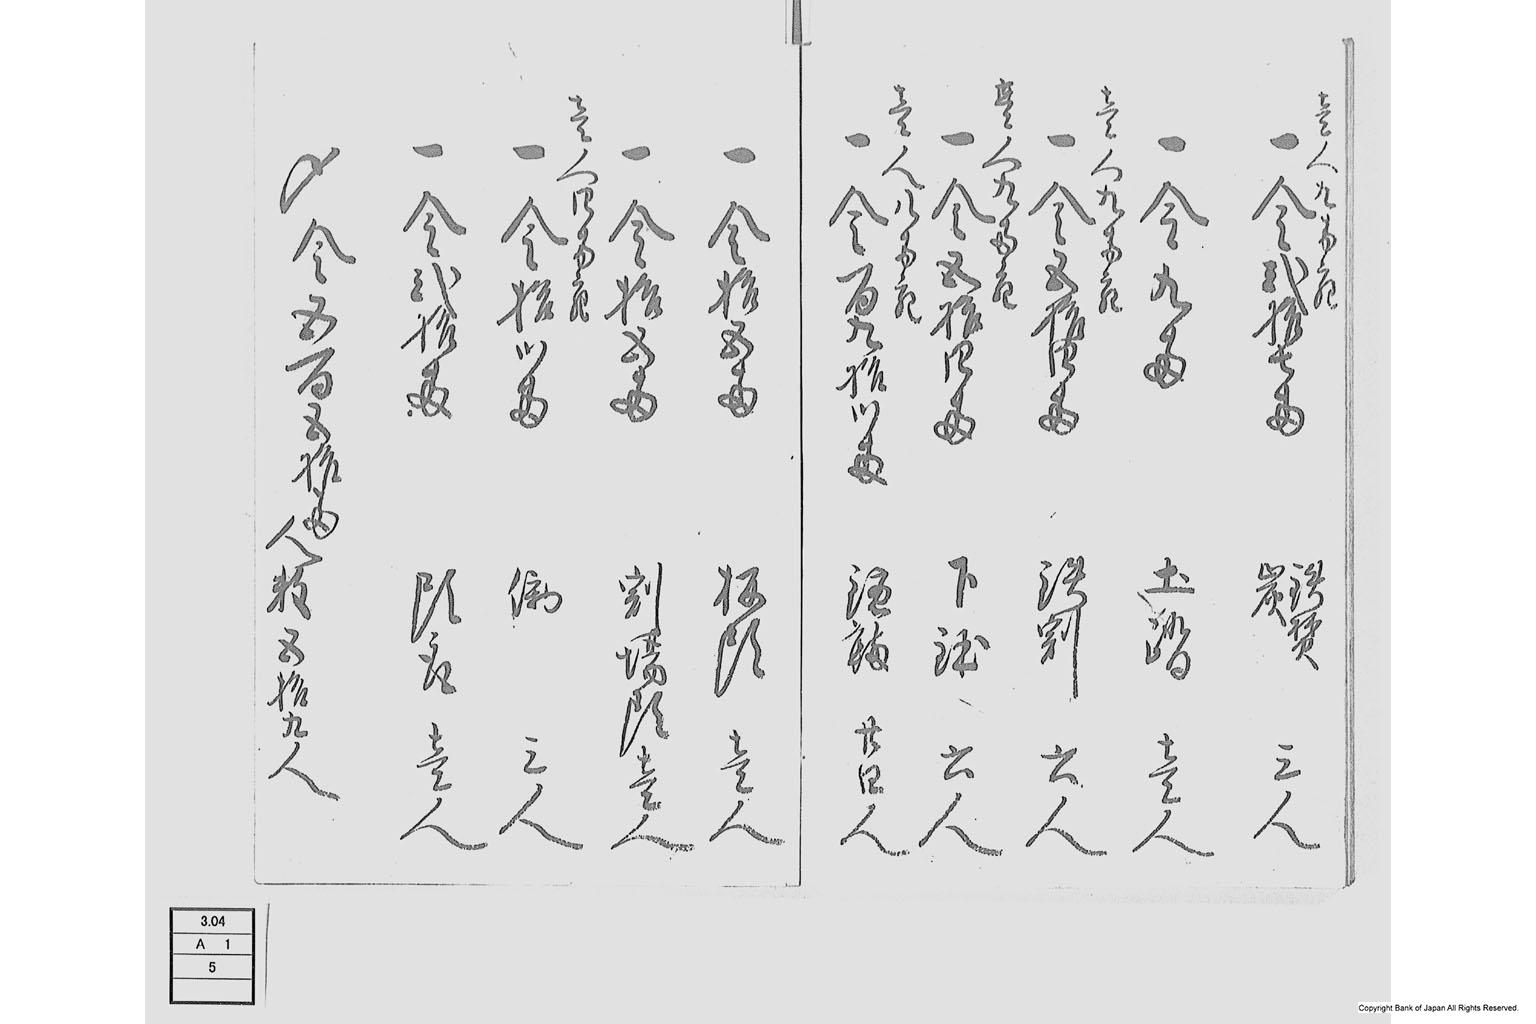 壱人九両宛
一金弐拾七両 三人
一金九両 土踏 壱人
壱人九両宛
一金五拾四両 六人
壱人九両宛
一金五拾四両 下 六人
壱人八両宛
一金百九拾弐両 廿四人
一金拾五両 壱人
一金拾五両 割場頭 壱人
壱人四両宛
一金拾弐両 三人
一金弐拾両 壱人
〆金五百五拾両 人数五拾九人
3.04
A 1
5
Copyright Bank of Japan All Rights Reserved.